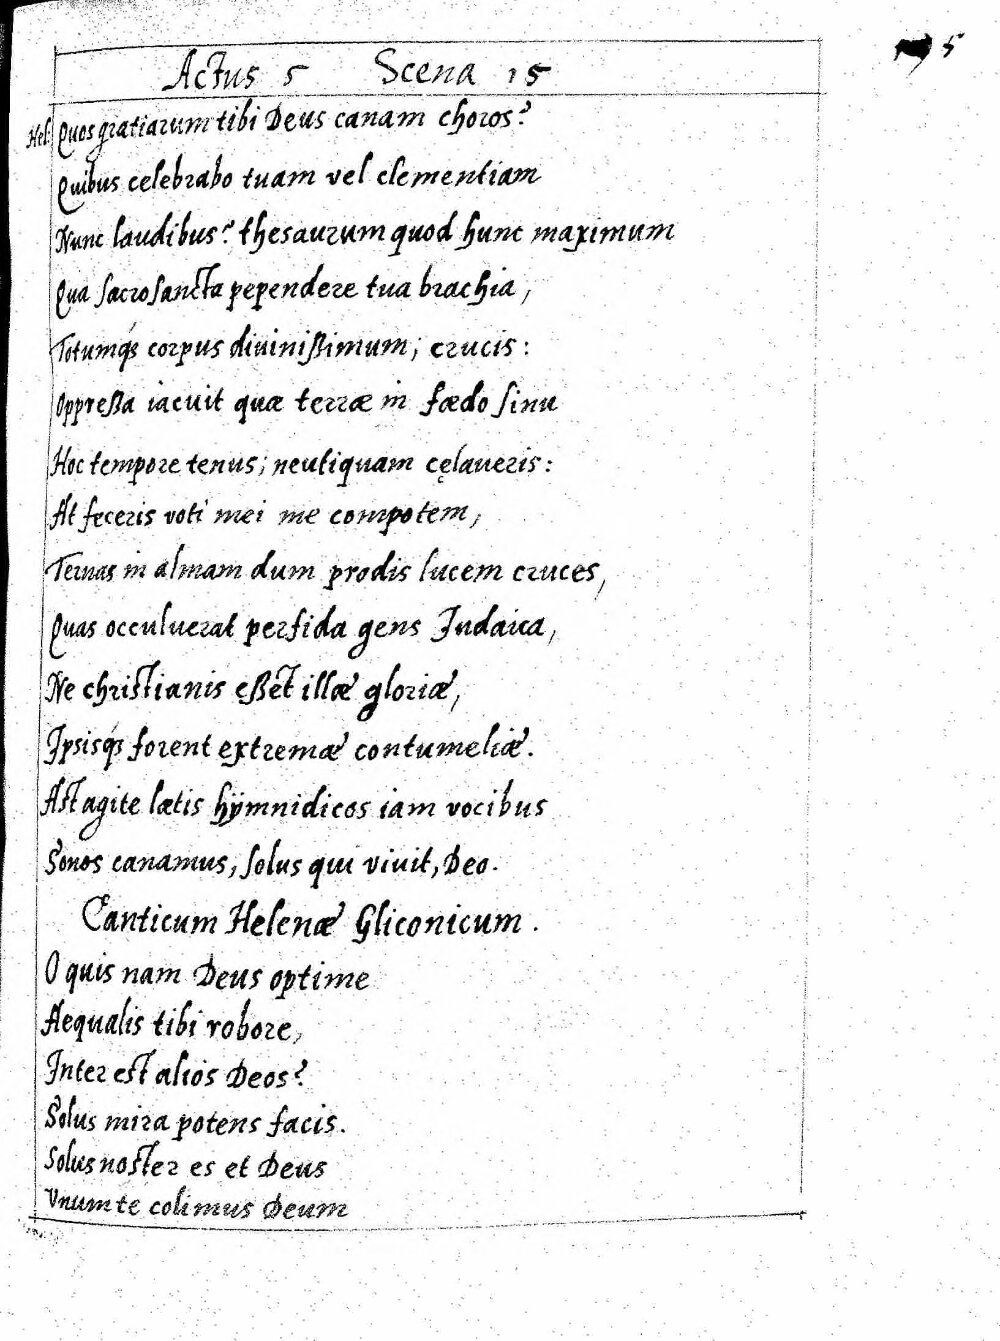 Actus 5 Scena 15
5
Hel: Quos gratiarum tibi Deus canam choros?
Quibus celebrabo tuam vel clementiam
Nunc laudibus? thesaurum quod hunc maximum
Qua sacrosancta pependere tua brachia,
Totumqs corpus diuinißimum; crucis:
Oppreßa iacuit quæ terræ in fœdo sinu
Hoc tempore tenus; neutiquam cęlaueris:
At feceris voti mei me compotem,
Ternas in almam dum prodis lucem cruces,
Quas occuluerat perfida gens Judaica,
Ne christianis eßet illæ gloriæ,
Ipsisqs forent extremæ contumeliæ.
Ast agite lætis hÿmnidicos iam vocibus
Sonos canamus, solus qui viuit, Deo.
Canticum Helenæ Gliconicum.
O quis nam Deus optime
Aequalis tibi robore,
Inter est aliòs Deos?
Solus mira potens facis.
Solus noster es et Deus
Vnum te colimus Deum